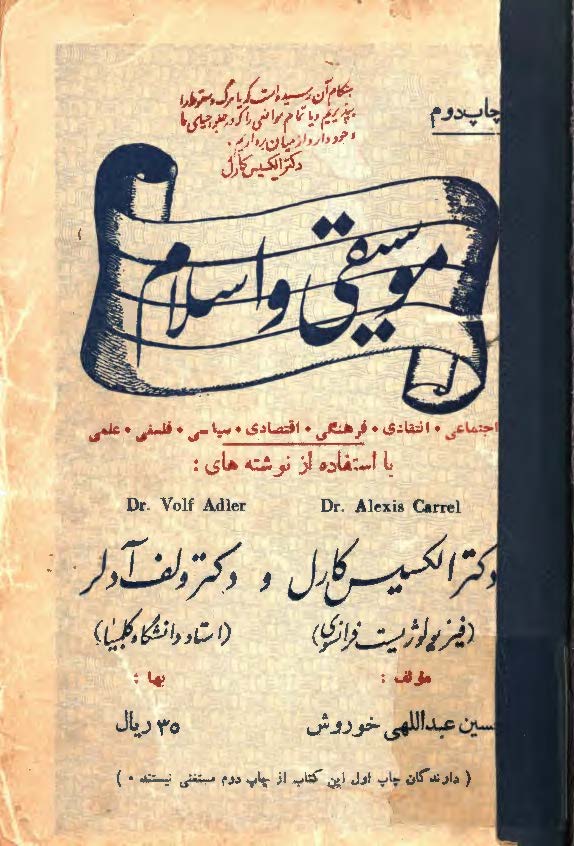 هنگام آن رسیده است که یا مرگ و سقوط را
بپذیریم و یا تمام موانعی را که در جلو
وجود دارد از میان برداریم.
دکتر الکسیس کارل
چاپ دوم
موسیقی و اسلام
اجتماعی • انتقادی • فرهنگی • اقتصادی • سیاسی • فلسفی • علمی
با استفاده از نوشته های :
Dr. Alexis Carrel Dr. Volf Adler
دکتر الکسیس کارل و دکتر ولف آدلر
(فیزیولوژیست فرانسوی) (استاد دانشگاه کلمبیا)
مؤلف : بها :
حسین عبداللهی خوروش ۳۵ ریال
( دارندگان چاپ اول این کتاب از چاپ دوم مستغنی نیستند • )